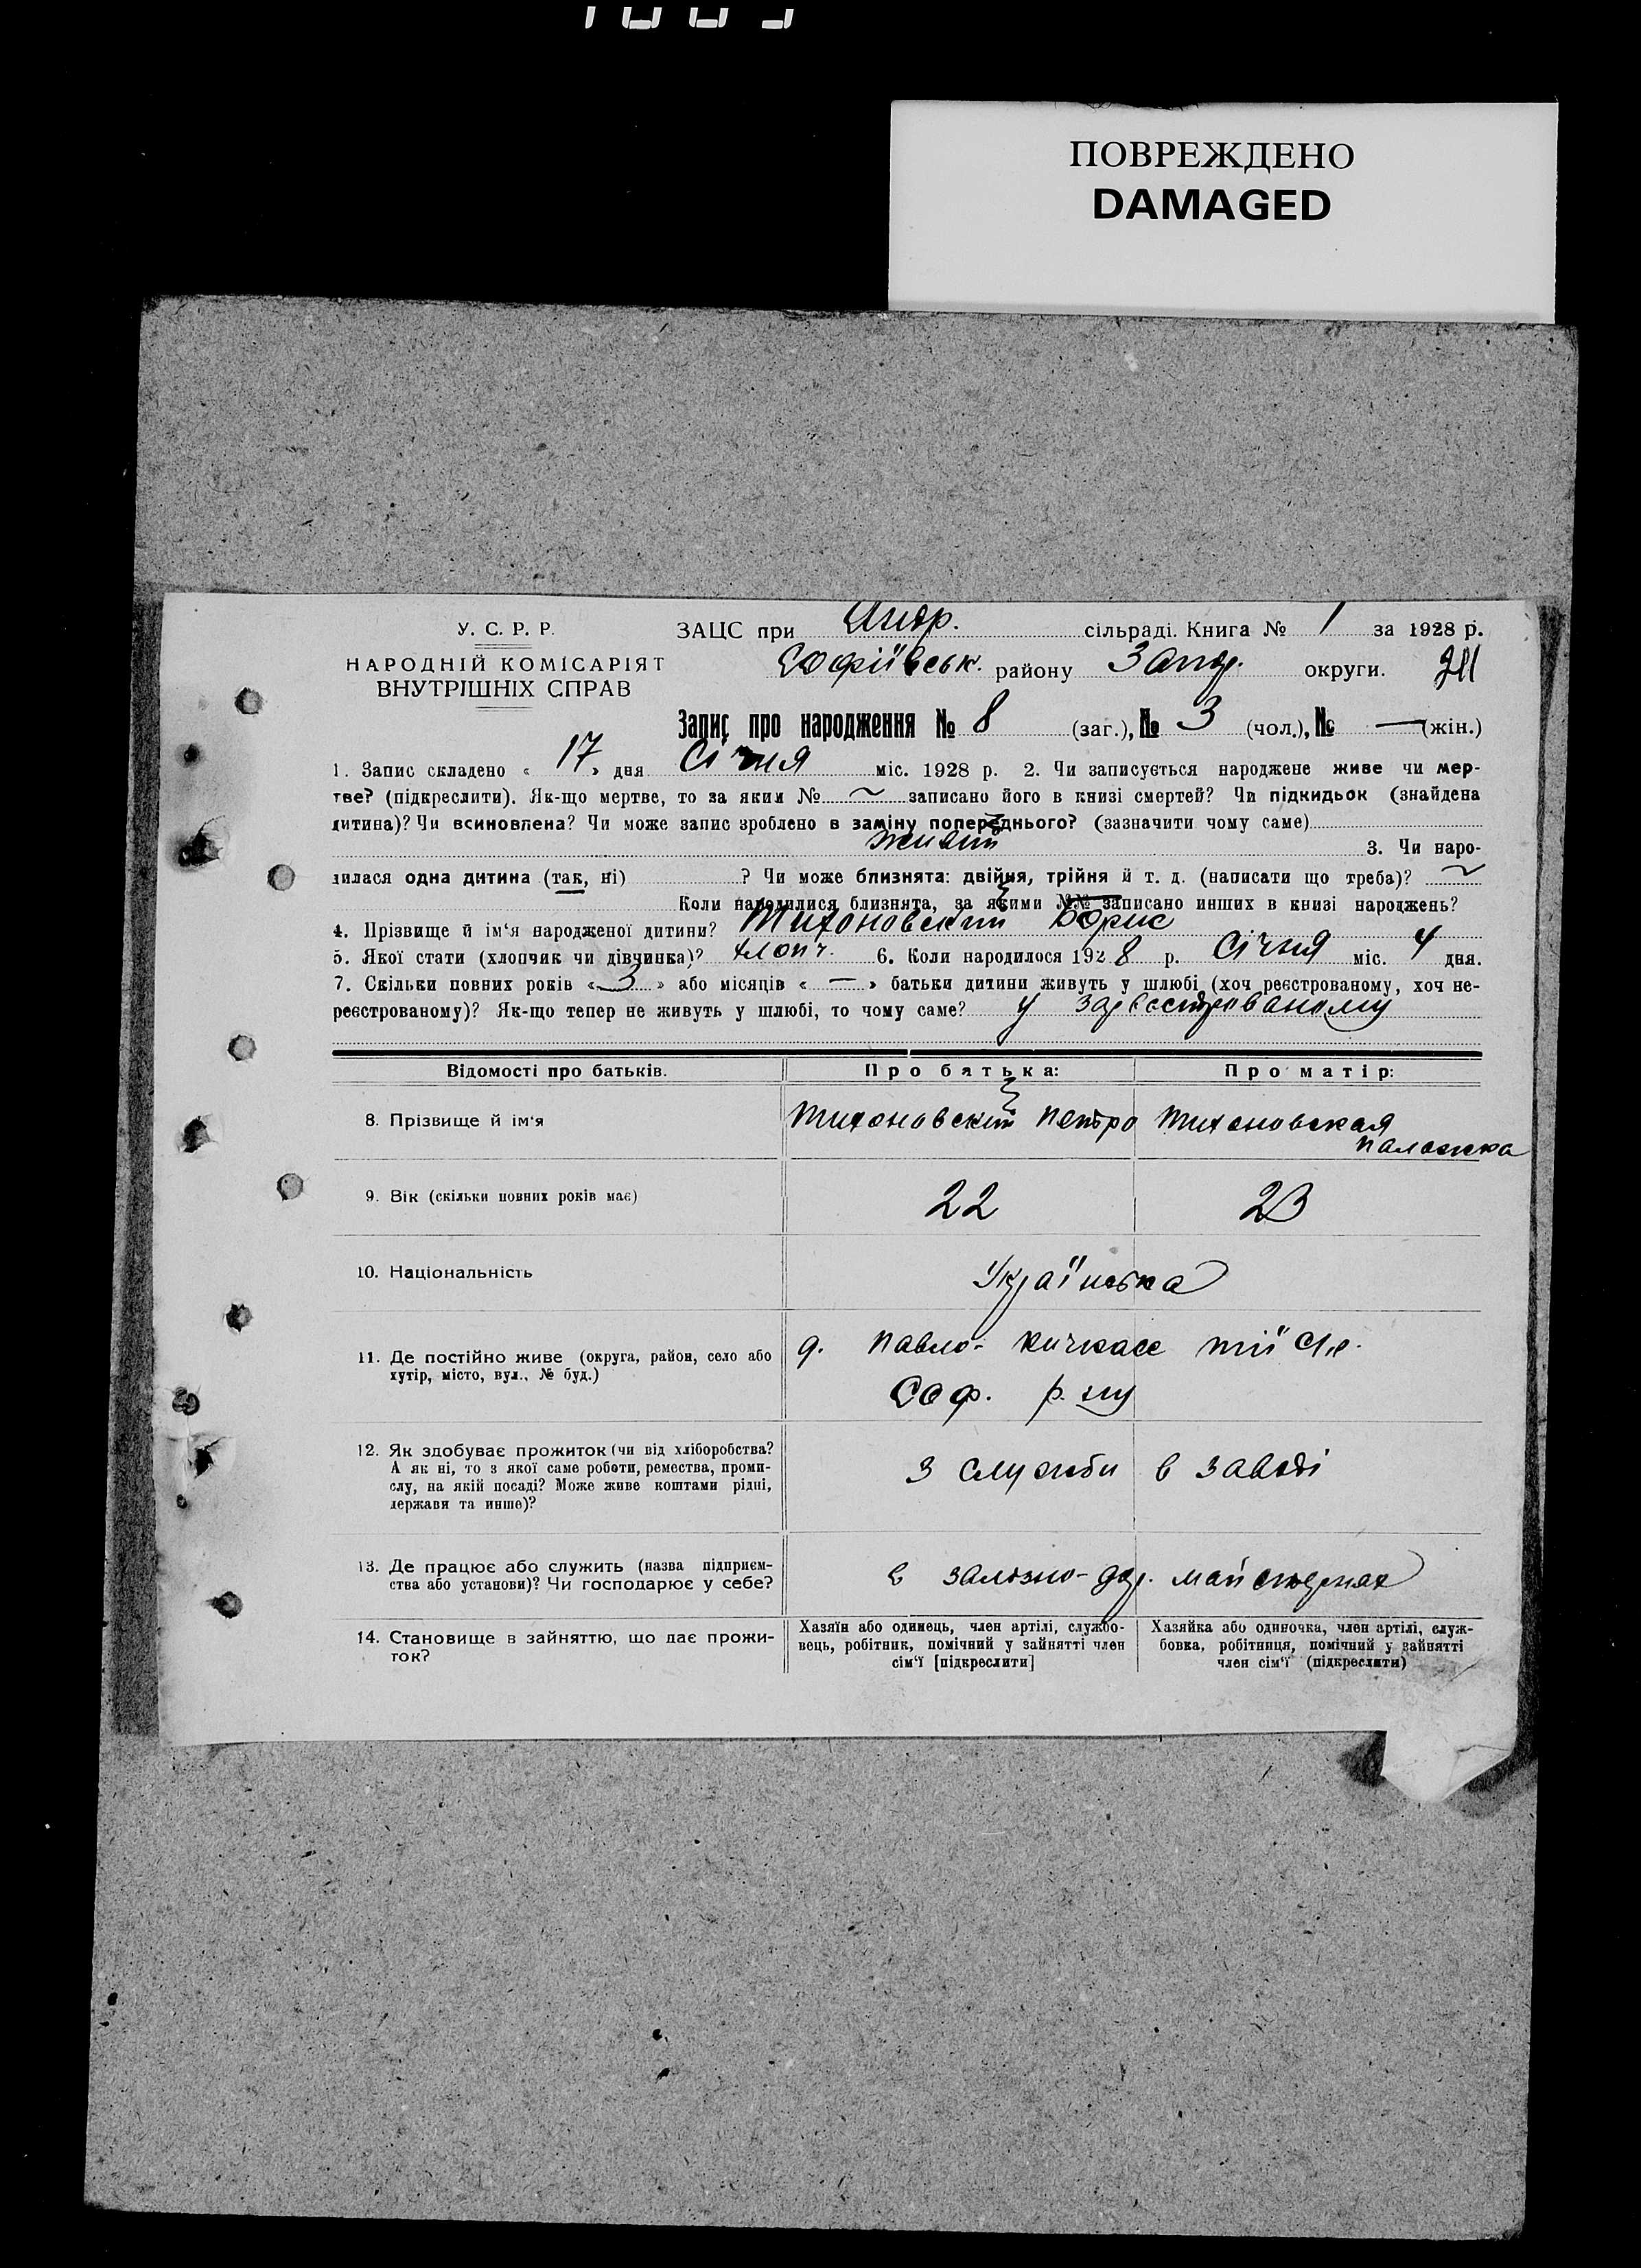 ПОВРЕЖДЕНО
DAMAGED
У. С. Р. Р.
НАРОДНІЙ КОМІСАРІЯТ
ВНУТРІШНІХ СПРАВ
ЗАЦС при Андр. сільраді. Книга № 1 за 1928 р.
Софіївськ. району Запор. округи.
Запис про народження № 8 (заг.), № 3 (чол.), № — (жін.)
1. Запис складено « 17 » дня Січня міс. 1928 р. 2. Чи записується народжене живе чи мер-
тве? (підкреслити). Як-що мертве, то за яким № ~ записано його в книзі смертей? Чи підкидьок (знайдена
дитина)? Чи всиновлена? Чи може запис зроблено в заміну попереднього? (зазначити чому саме)
живий 3. Чи наро-
дилася одна дитина (так, ні) ? Чи може близнята: двійня, трійня й т. д. (написати що треба)? ~
Коли народилися близнята, за якими №№ записано инших в книзі народжень?
4. Прізвище й ім‘я народженої дитини? Тихоновский Борис
5. Якої стати (хлопчик чи дівчинка)? хлопч. 6. Коли народилося 1928 р. Січня міс. 4 дня.
7. Скільки повних років « 3 » або місяців « — » батьки дитини живуть у шлюбі (хоч реєстрованому, хоч не-
реєстрованому)? Як-що тепер не живуть у шлюбі, то чому саме? у зареєстрованому
Відомості про батьків. Про батька: Про матір:
8. Прізвище й ім‘я Тихоновский Петро Тихоновская
Палажка
9. Вік (скільки повних років має) 22 23
10. Національність Українська
11. Де постійно живе (округа, район, село або
хутір, місто, вул., № буд.)
Павло- Кичкасс
Соф. р.
12. Як здобуває прожиток (чи від хліборобства?
А як ні, то з якої саме роботи, ремества, проми-
слу, на якій посаді? Може живе коштами рідні,
держави та инше)?
З служби в заводі
13. Де працює або служить (назва підприєм-
ства або установи)? Чи господарює у себе?
в залізно-дор. майстернях
14. Становище в зайняттю, що дає прожи-
ток?
Хазяїн або одинець, член артілі, службо-
вець, робітник, помічний у зайнятті член
сім‘ї [підкреслити]
Хазяйка або одиночка, член артілі, служ-
бовка, робітниця, помічний у зайнятті
член сім‘ї (підкреслити)